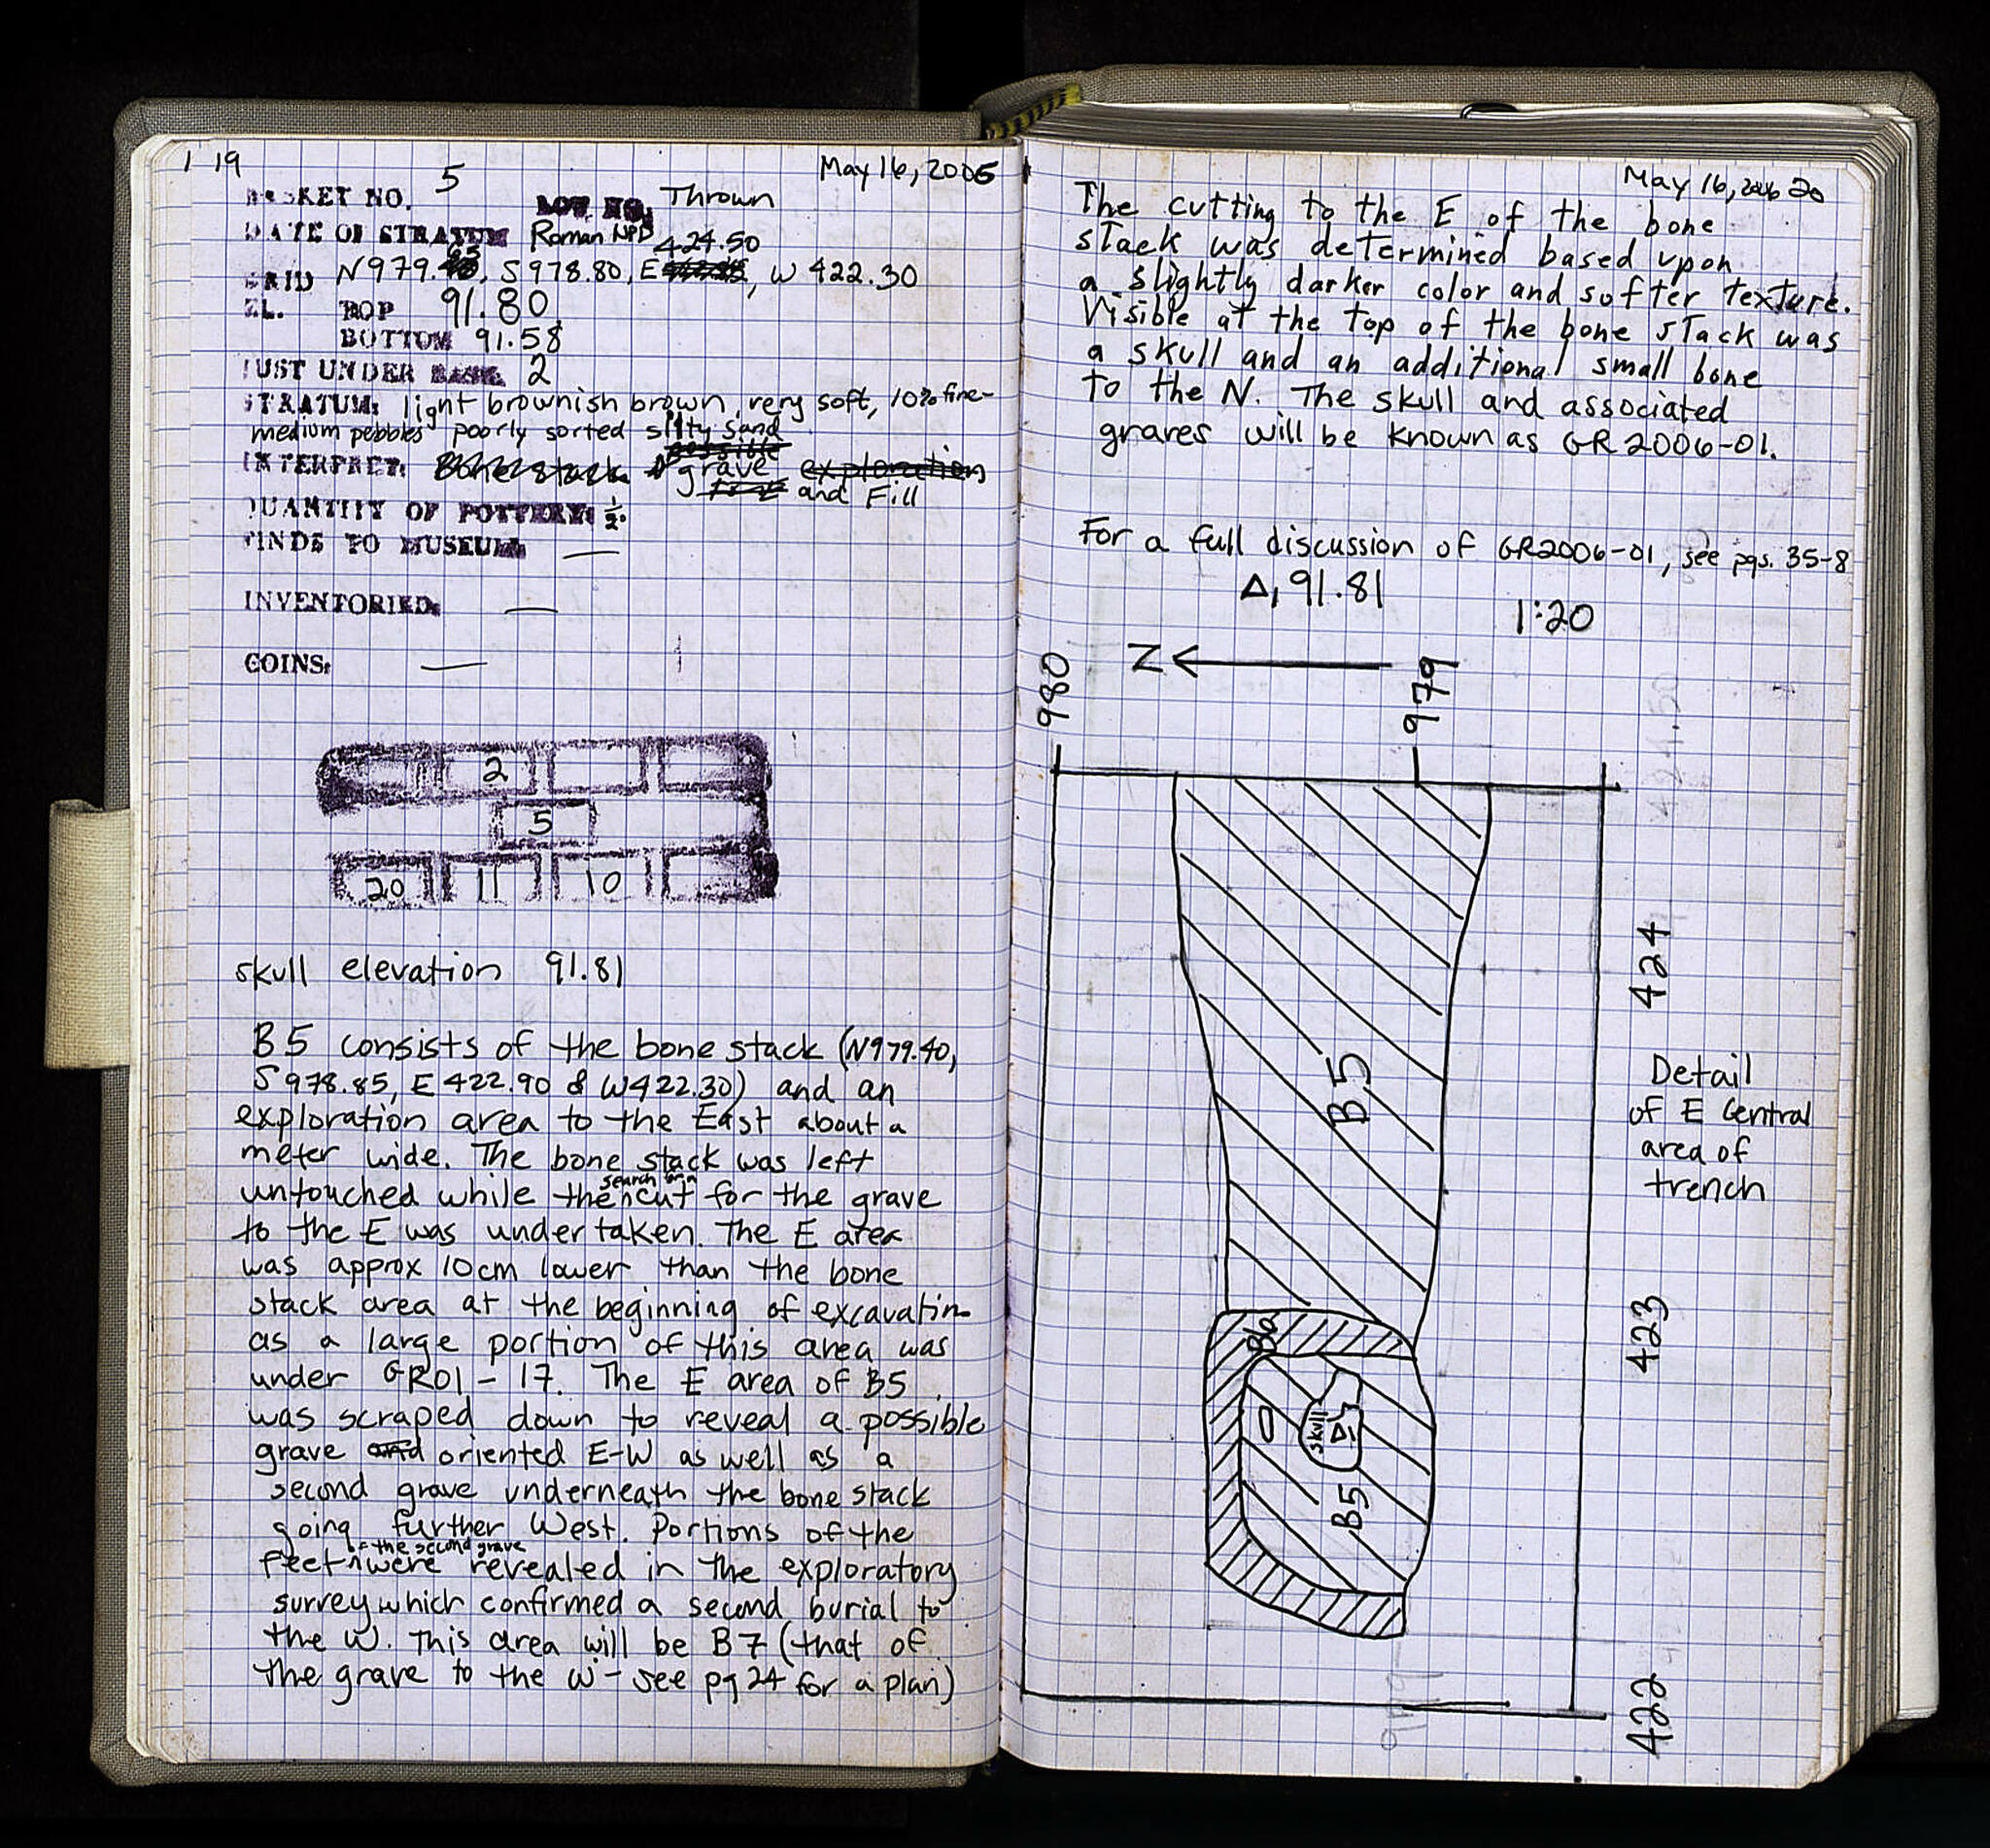 19
May 16, 2006
BASKET NO. 5 LOT NO. Thrown
DATE OF STRATUM Roman NPD 424.50
GRID N979.63, S978.80, E, W 422.30
EL. TOP 91.80
BOTTOM 91.58
JUST UNDER BASK. 2
STRATUM: light brownish brown, very soft, 10% fine-
medium pebbles poorly sorted silty sand
possible
INTERPRET: Bone stack grave exploration
and Fill
QUANTITY OF POTTERY: 1/2.
FINDS TO MUSEUM: —
INVENTORIED: —
COINS: —
2
5
20 11 10
skull elevation 91.81
B5 consists of the bone stack (N979.40,
S978.85, E422.90 & W422.30) and an
exploration area to the East about a
meter wide. The bone stack was left
search for a
untouched while the cut for the grave
to the E was undertaken. The E area
was approx 10cm lower than the bone
stack area at the beginning of excavatin
as a large portion of this area was
under GR01-17. The E area of B5
was scraped down to reveal a possible
grave and oriented E-W as well as a
second grave underneath the bone stack
going further West. Portions of the
of the second grave
feet were revealed in the exploratory
survey which confirmed a second burial to
the W. This area will be B7 (that of
the grave to the W - see pg 24 for a plan)
May 16, 2006 20
The cutting to the E of the bone
stack was determined based upon
a slightly darker color and softer texture.
Visible at the top of the bone stack was
a skull and an additional small bone
to the N. The skull and associated
graves will be known as GR2006-01.
For a full discussion of GR2006-01, see pgs. 35-8
Δ1 91.81
1:20
980
N
979
424
B5
Detail
of E Central
area of
trench
423
B6
skull
Δ1
B5
422